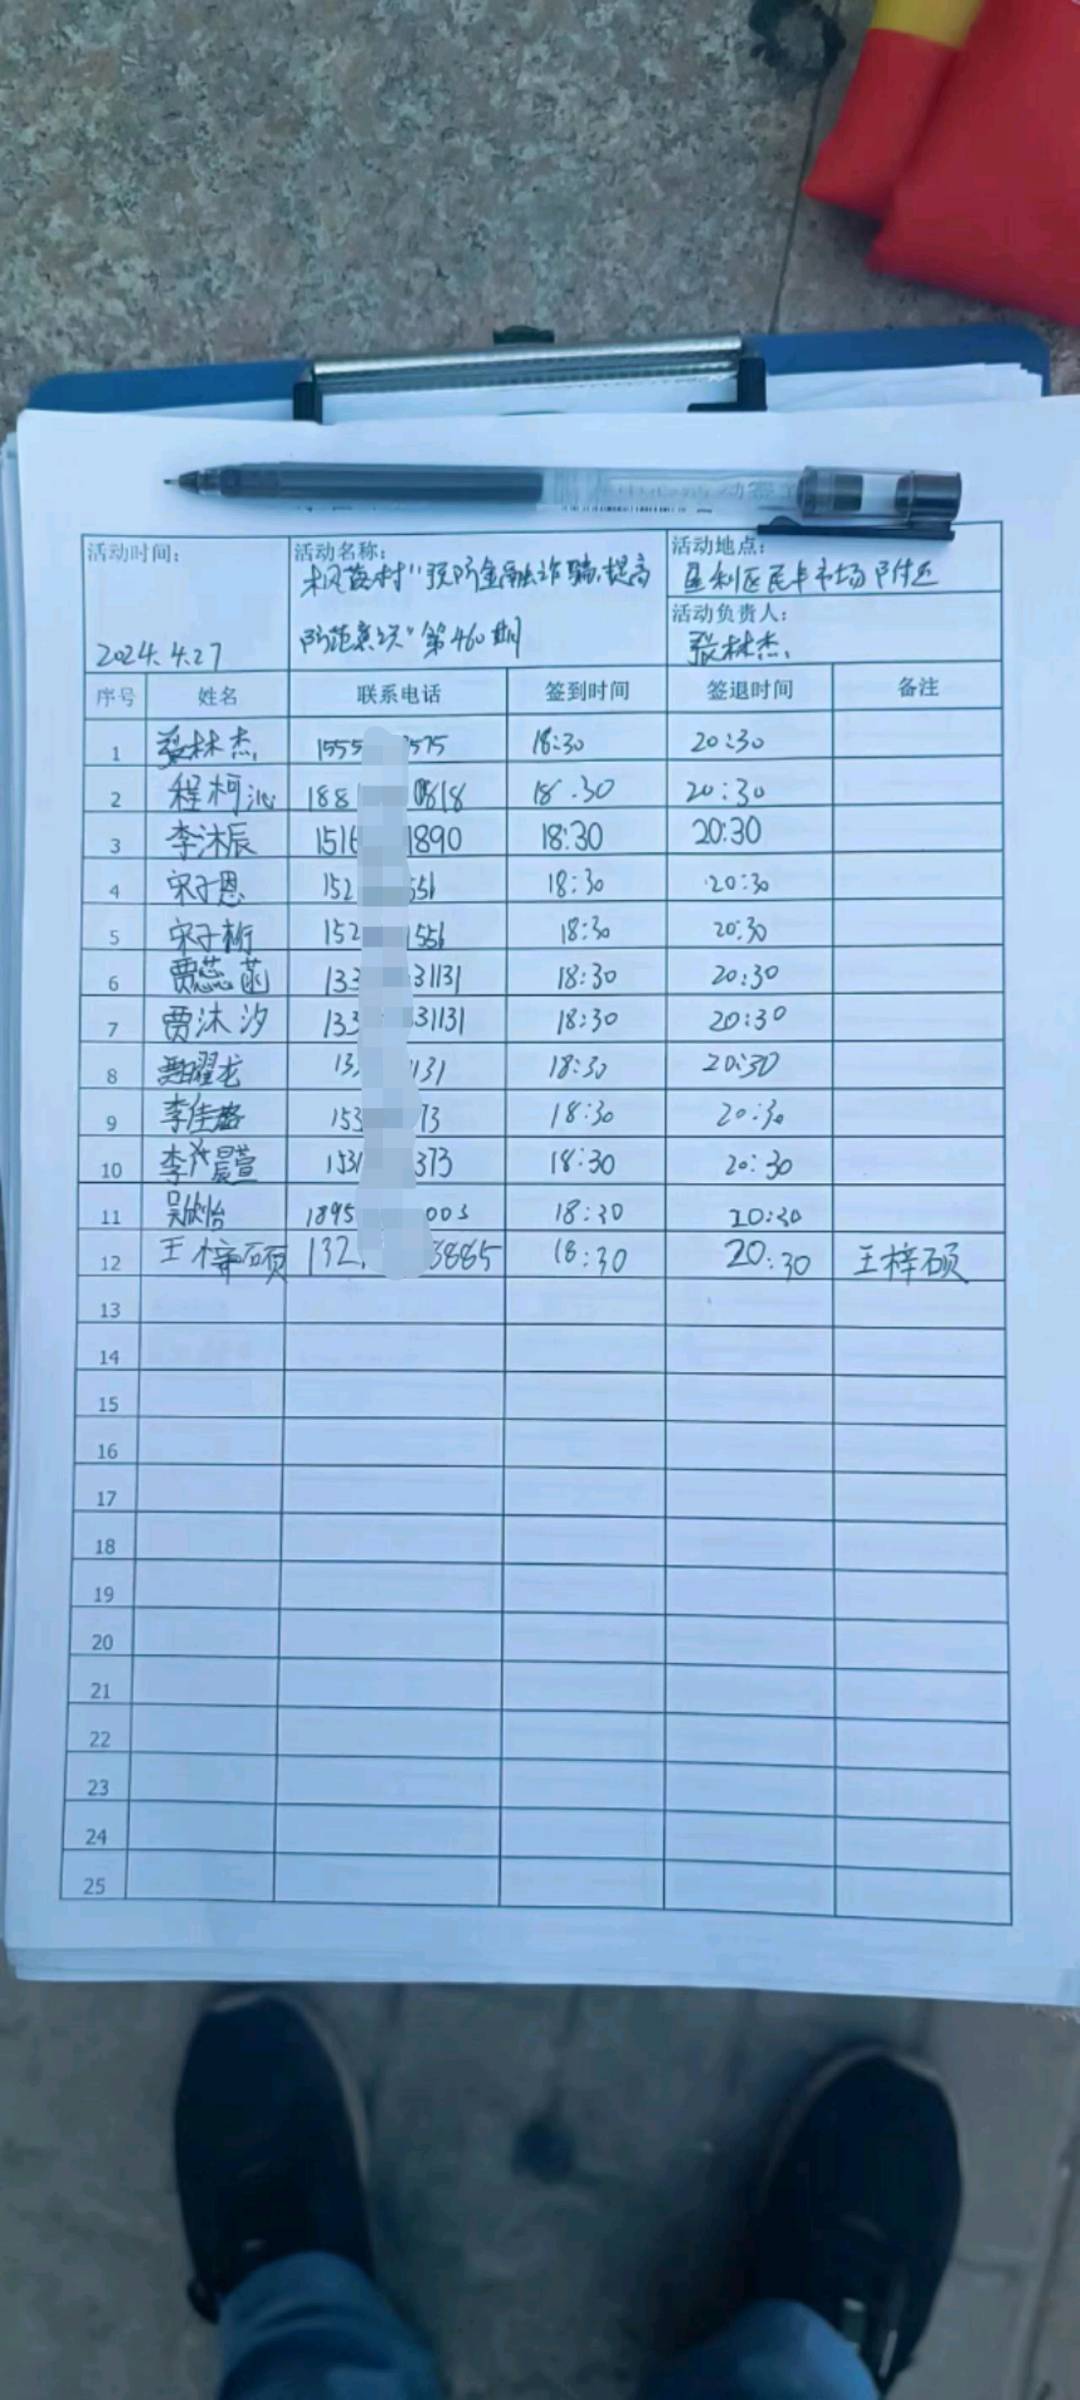 活动时间：
2024.4.27
活动名称：
枫苗村"预防金融诈骗,提高
防范意识"第460期
活动地点：
民车市场附近
活动负责人：
张林杰
序号 姓名 联系电话 签到时间 签退时间 备注
1 张林杰 1555 575 18:30 20:30
2 程柯沁 188 0818 18:30 20:30
3 李沐辰 1516 1890 18:30 20:30
4 宋子恩 152 551 18:30 20:30
5 宋子桁 152 1556 18:30 20:30
6 贾蕊菡 133 31131 18:30 20:30
7 贾沐汐 133 31131 18:30 20:30
8 曜龙 13 131 18:30 20:30
9 李佳 153 73 18:30 20:30
10 李晨萱 1531 373 18:30 20:30
11 吴欣怡 1895 003 18:30 20:30
12 王梓硕 132 3885 18:30 20:30 王梓硕
13
14
15
16
17
18
19
20
21
22
23
24
25